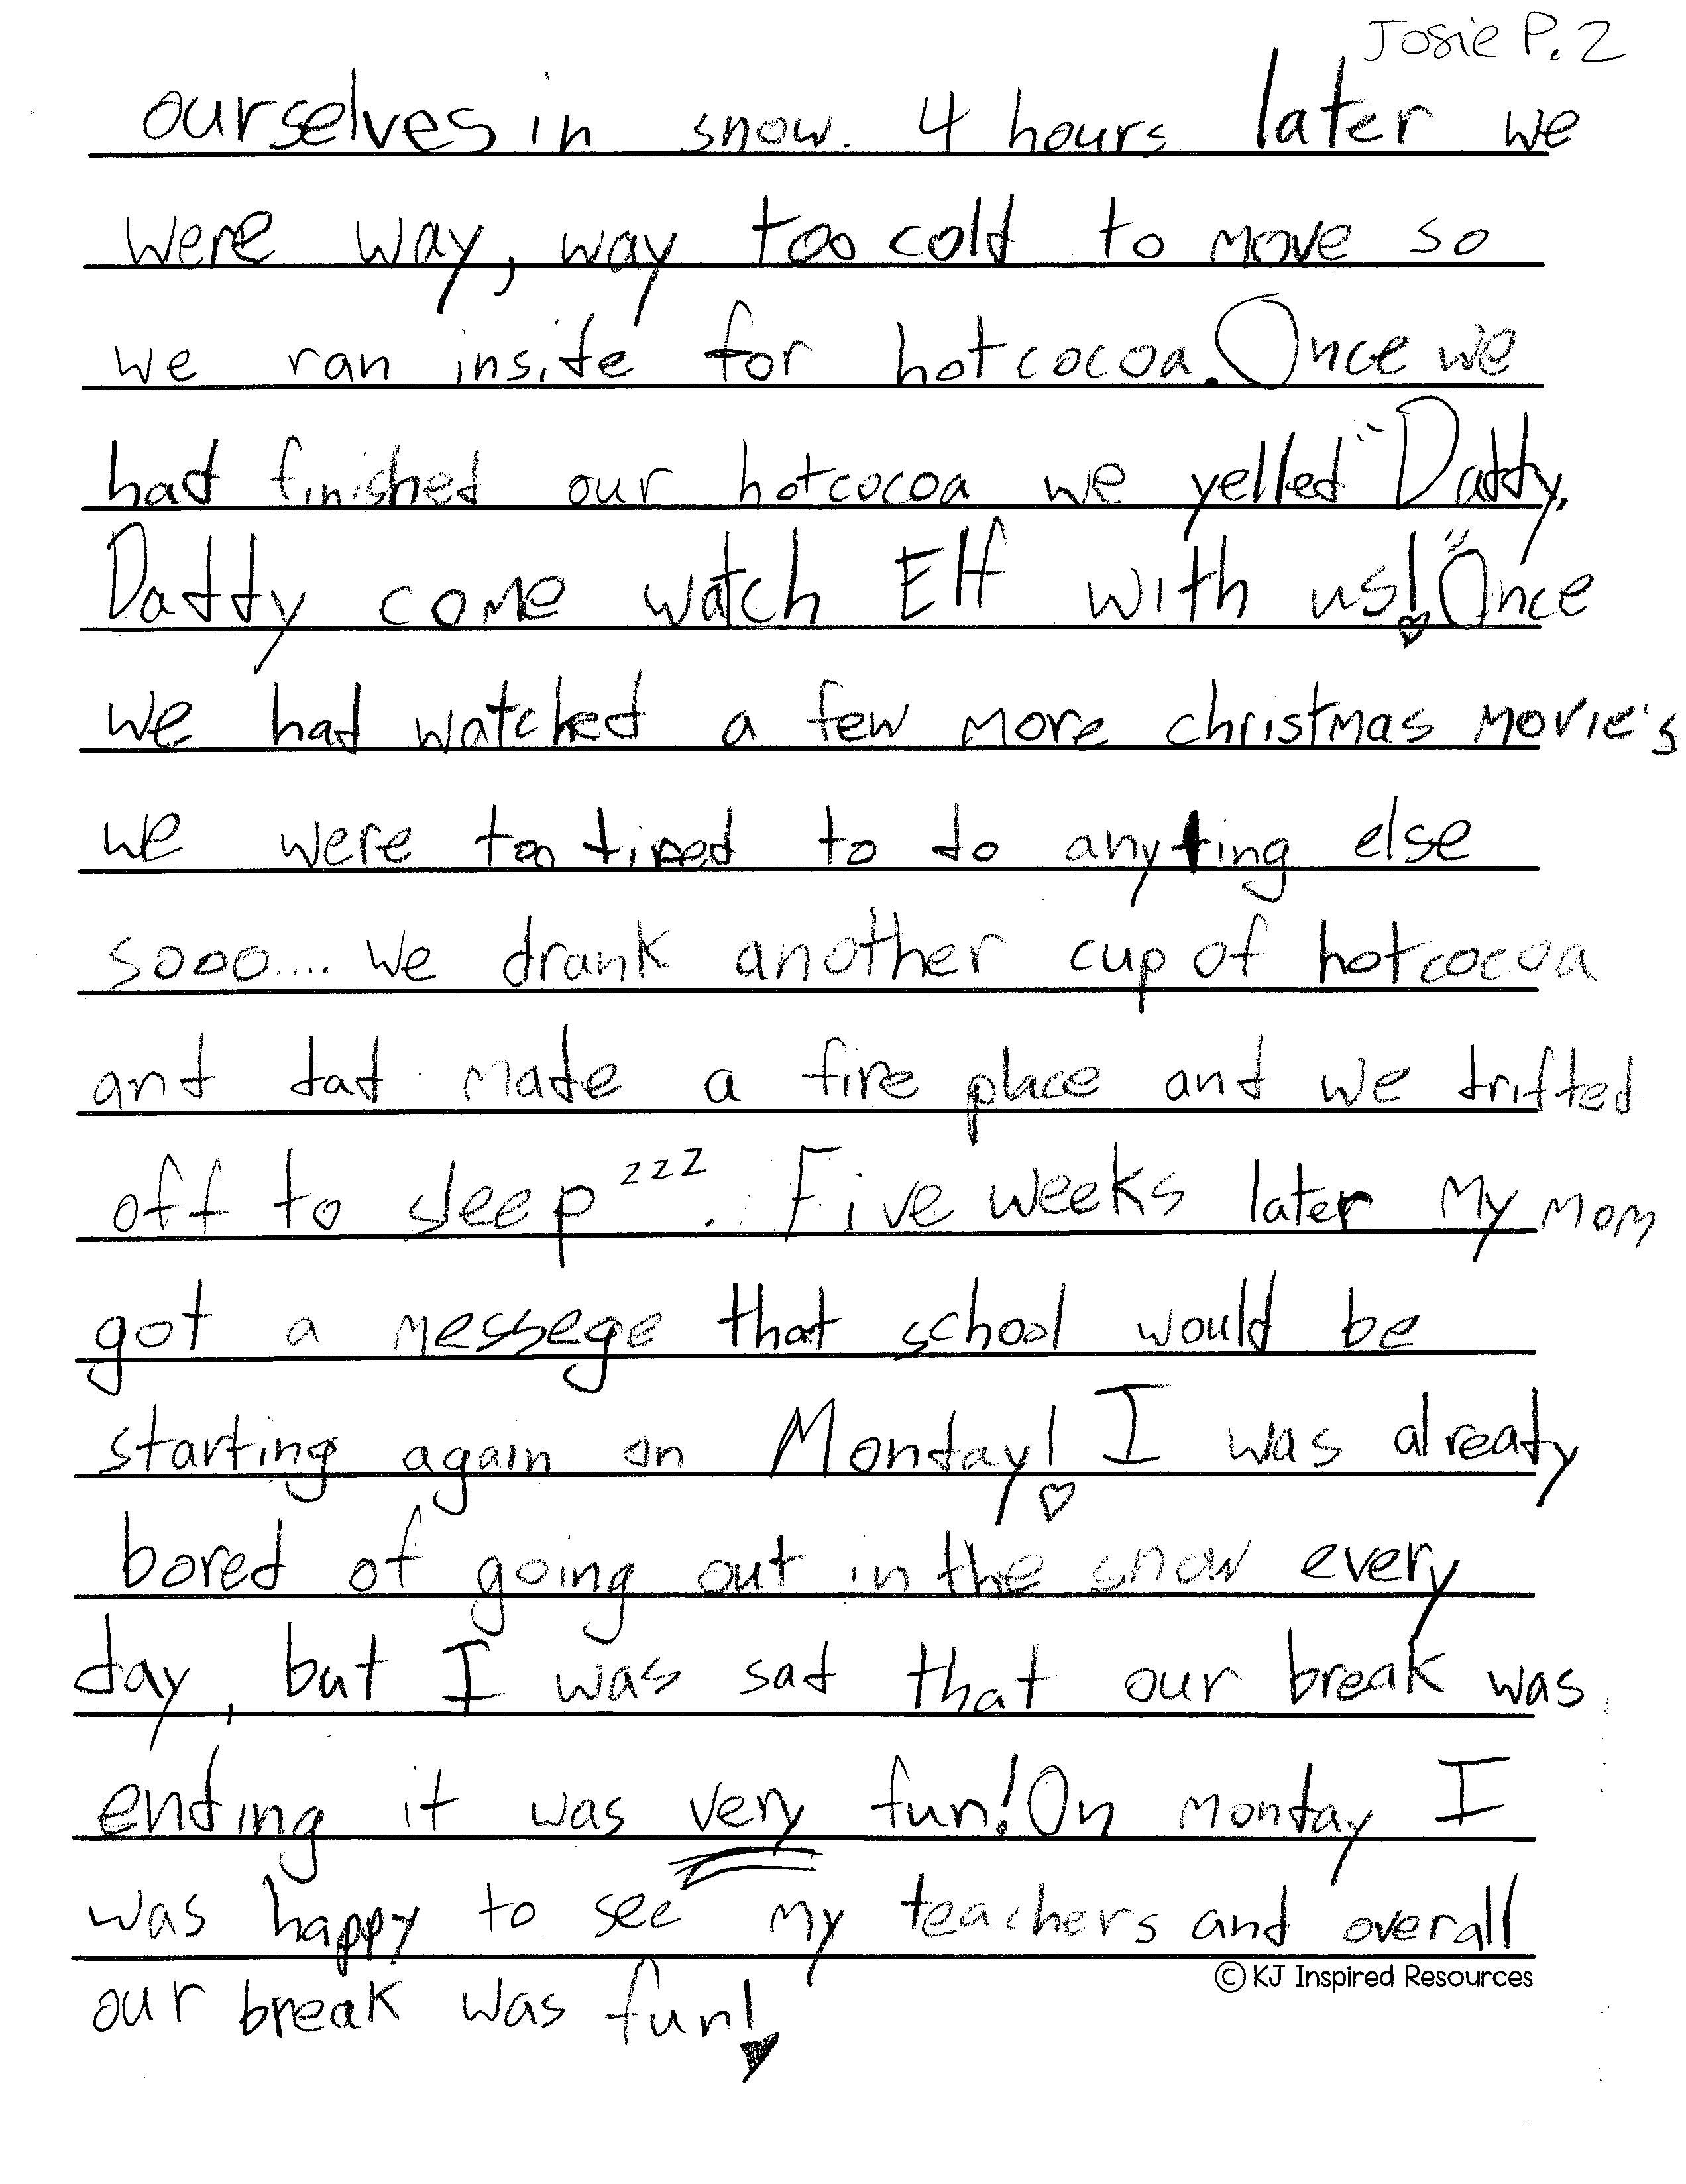 Josie P. 2
ourselves in snow. 4 hours later we
were way, way too cold to move so
we ran inside for hot cocoa. Once we
had finished our hot cocoa we yelled "Daddy,
Daddy come watch Elf with us!" Once
we had watched a few more christmas movie's
we were too tired to do anyting else
sooo.... we drank another cup of hot cocoa
and dad made a fire place and we drifted
off to sleep zzz. Five weeks later my mom
got a messege that school would be
starting again on Monday! I was already
bored of going out in the snow every
day, but I was sad that our break was
ending it was very fun! On monday I
was happy to see my teachers and overall
© KJ Inspired Resources
our break was fun!